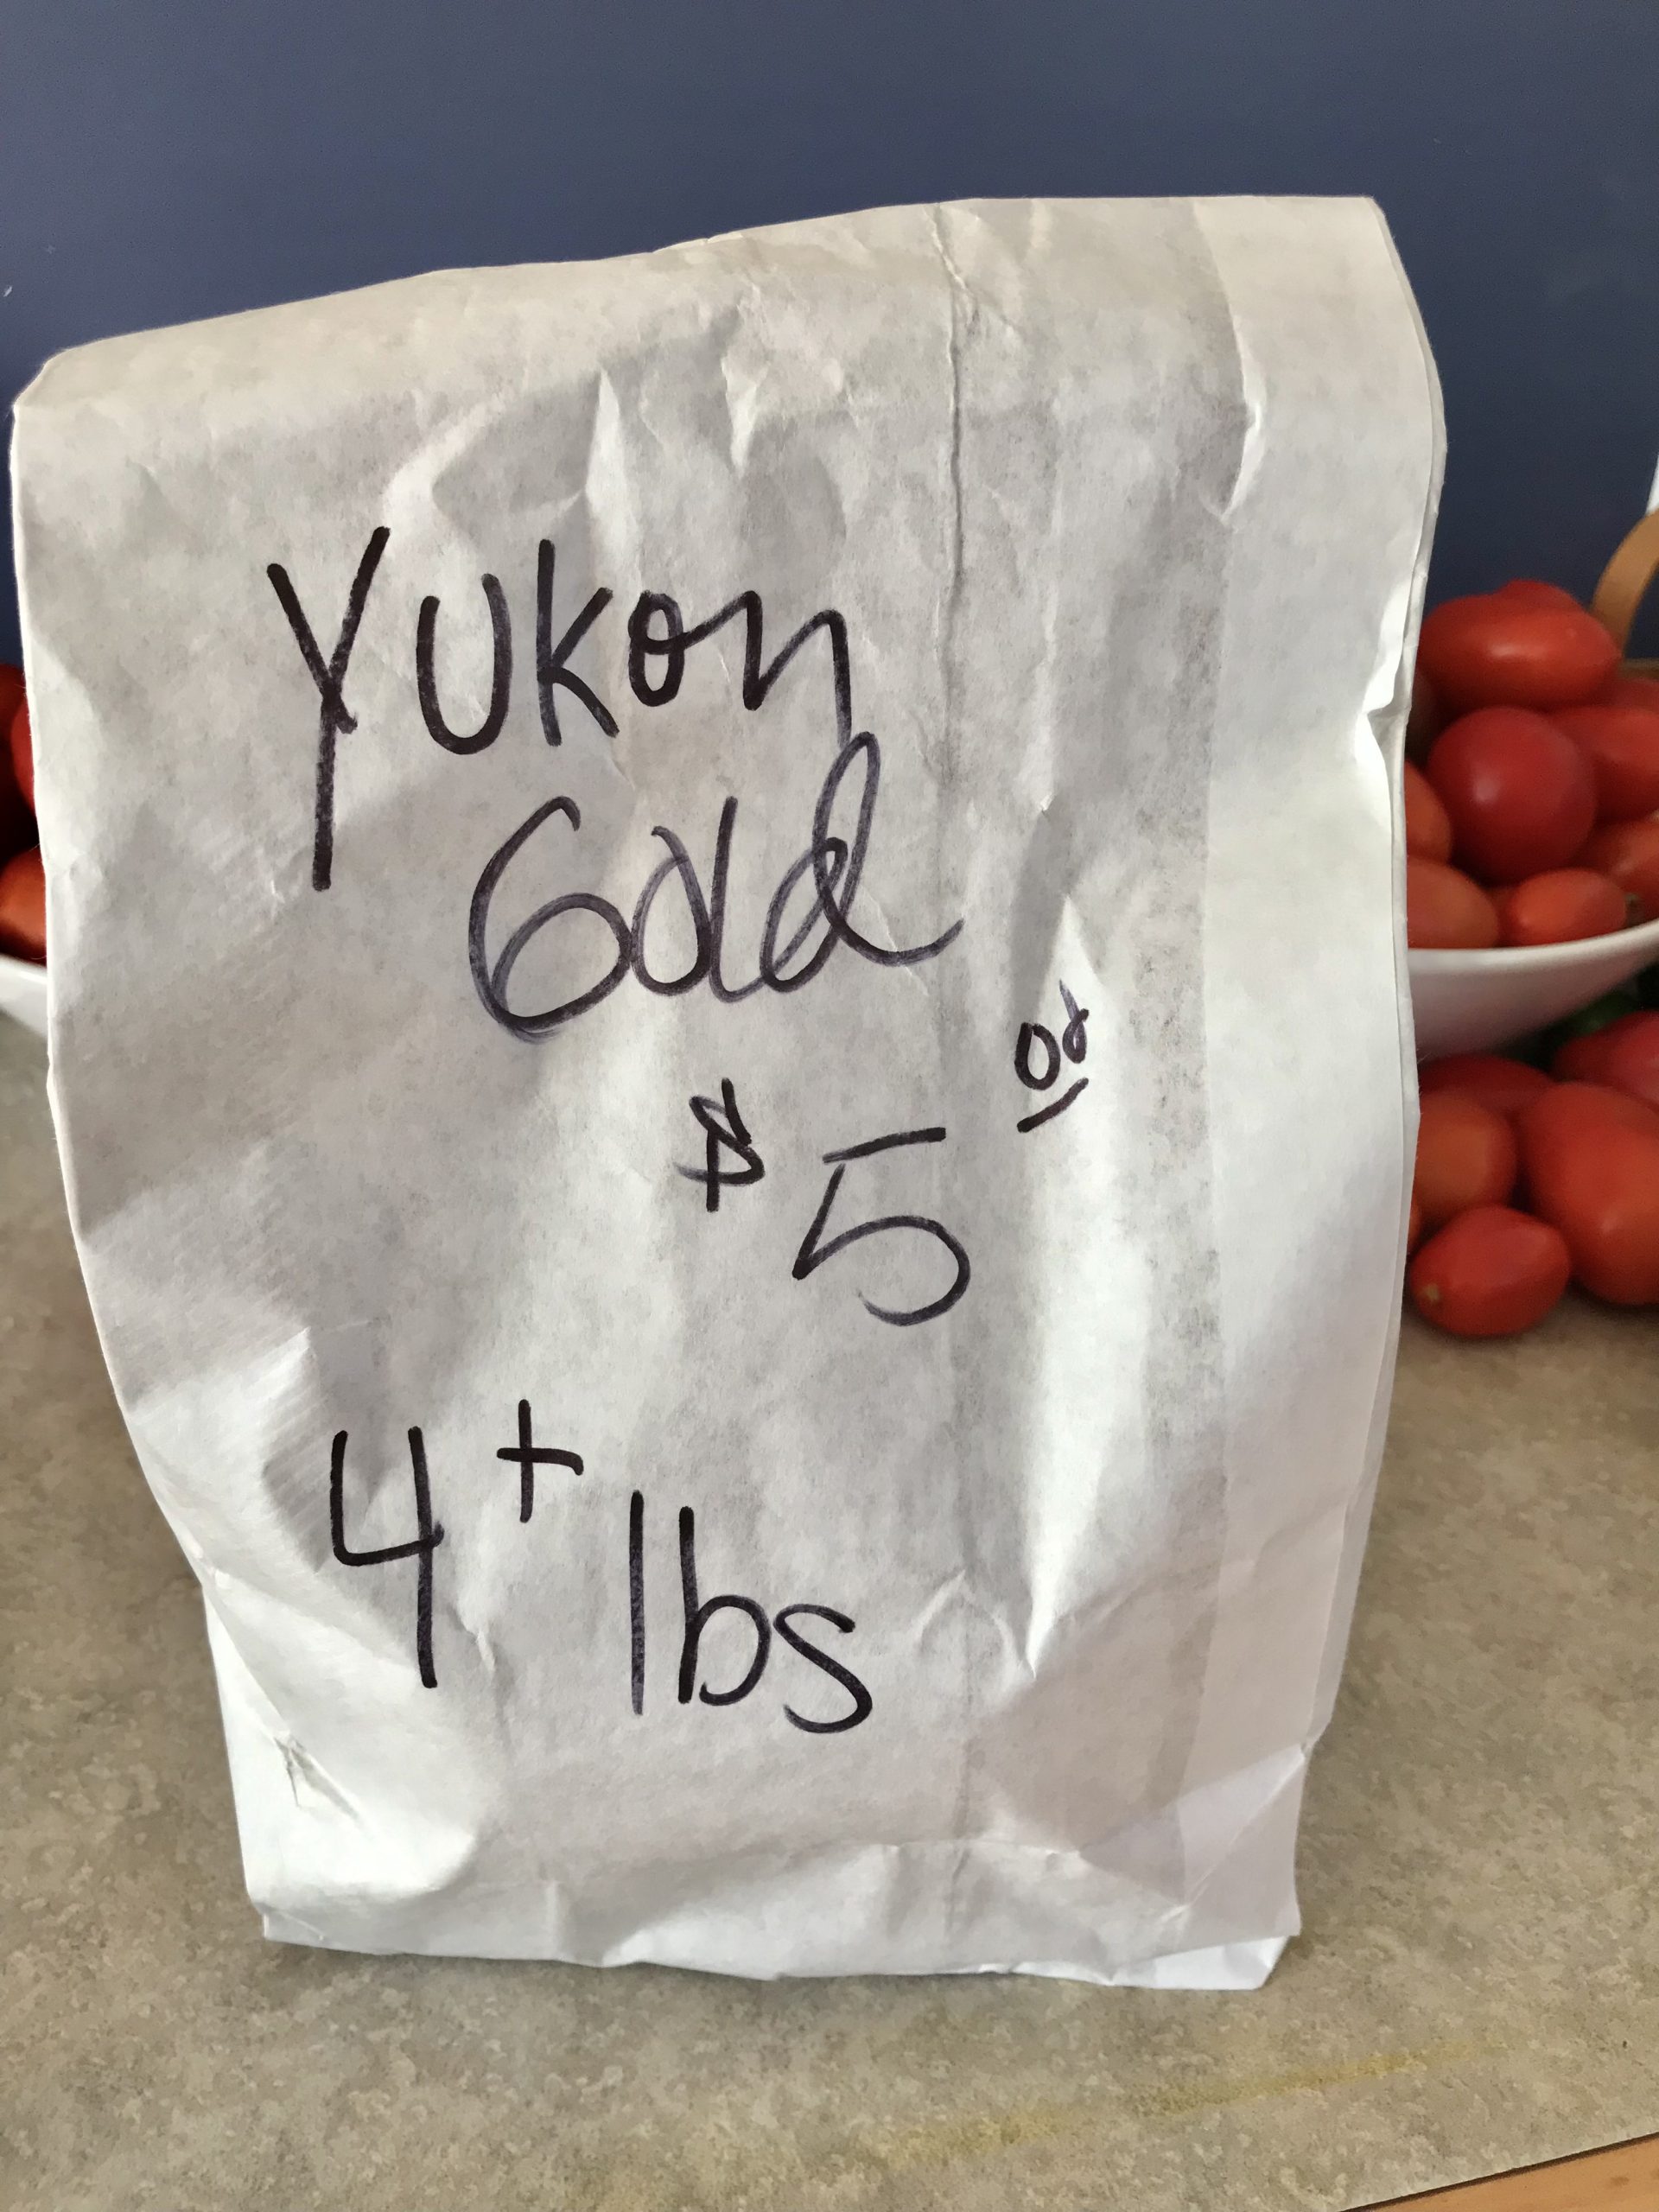 Yukon
Gold
$5 00
4+ lbs